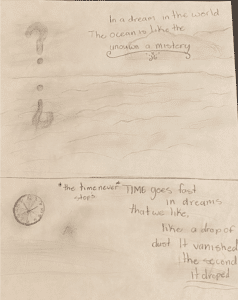 In a dream in the world
The ocean is like the
inouwe a mistery
"the time never"
stops
TIME goes fast
in dreams
that we like,
like a drop of
dust It vanished
the second
it droped